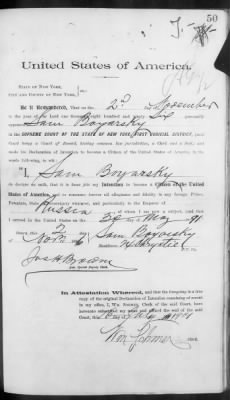 50
United States of America.
STATE OF NEW YORK,
CITY AND COUNTY OF NEW YORK, } ss.:
Be it Remembered, That on the 2d day of November
in the year of our Lord one thousand eight hundred and ninety Six personally
Sam Boyarsky
in the SUPREME COURT OF THE STATE OF NEW YORK, FIRST JUDICIAL DISTRICT, (said
Court being a Court of Record, having common law jurisdiction, a Clerk and a Seal), and
made his Declaration of Intention to become a Citizen of the United States of America, in the
words following, to wit:
"I, Sam Boyarsky
do declare on oath, that it is bona fide my Intention to become a Citizen of the United
States of America, and to renounce forever all allegiance and fidelity to any foreign Prince,
Potentate, State or Sovereignty whatever, and particularly to the Emperor of
Russia of whom I am now a subject, and that
I arrived in the United States on the day of
Sworn, this 2
day of Nov 6 Sam Boyarsky
Residence, N.Y. City.
In Attestation Whereof, and that the foregoing is a true
copy of the original Declaration of Intention remaining of record
in my office, I, Wm. Sohmer, Clerk of the said Court, have
hereunto subscribed my name and affixed the seal of the said
Court, this day of July 1901
Wm Sohmer Clerk.